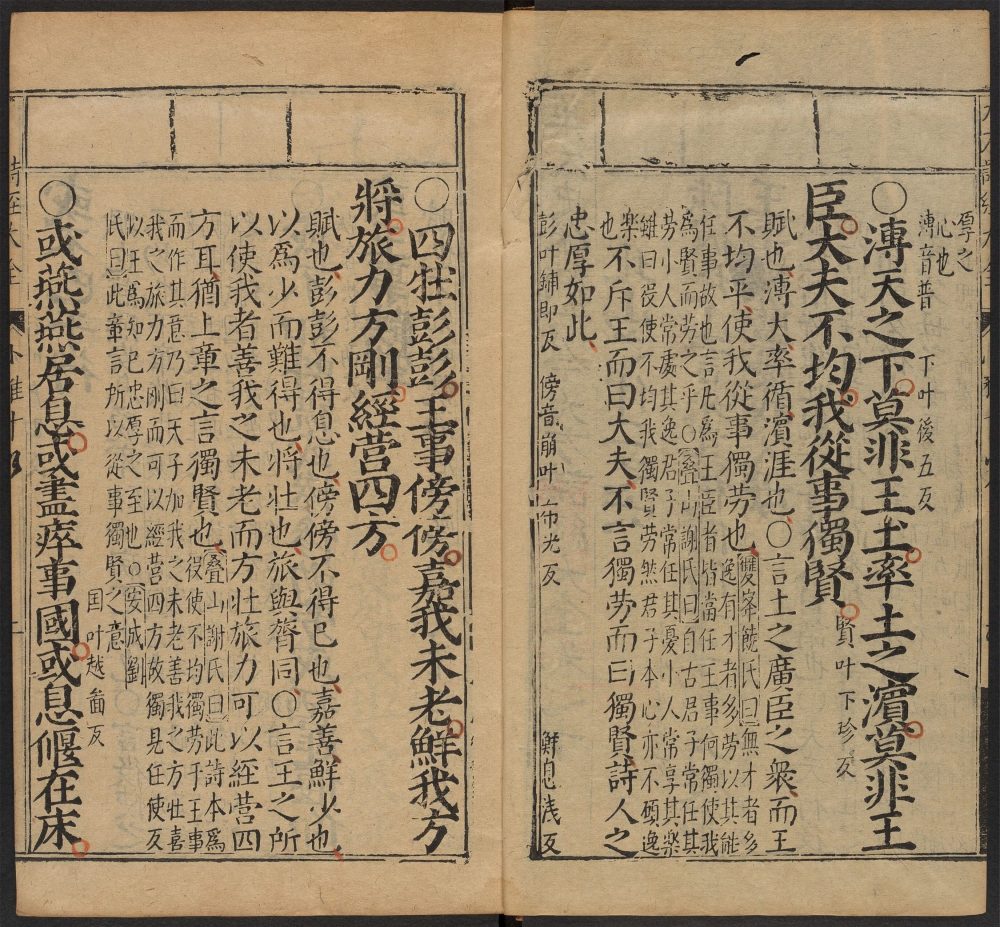 厚之
心也
溥音普
下叶後五反
○溥天之下莫非王土率土之濱莫非王
臣大夫不均我從事獨賢
賢叶下珍反
賦也溥大率循濱涯也○言土之廣臣之衆而王
不均平使我從事獨勞也
雙峯饒氏曰無才者多
逸有才者多勞以其能
任事故也言凡爲王臣者皆當任王事何獨使我
爲賢而勞之乎○疊山謝氏曰自古君子常任其
勞小人常處其逸君子常任其憂小人常享其樂
雖曰役使不均我獨賢勞然君子本心亦不願逸
樂
也不斥王而曰大夫不言獨勞而曰獨賢詩人之
忠厚如此
彭叶鋪郎反
傍音崩叶布光反
鮮息淺反
○四牡彭彭王事傍傍嘉我未老鮮我方
將旅力方剛經營四方
賦也彭彭不得息也傍傍不得已也嘉善鮮少也
以爲少而難得也將壯也旅與膂同○言王之所
以使我者善我之未老而方壯旅力可以經營四
方耳猶上章之言獨賢也
疊山謝氏曰此詩本爲
役使不均獨勞于王事
而作其意乃曰天子加我之未老善我之方壯喜
我之旅力方剛而可以經營四方故獨見任使反
以王爲知已忠厚之至也○安成劉
氏曰此章言所以從事獨賢之意
国叶越逼反
○或燕燕居息或盡瘁事國或息偃在床